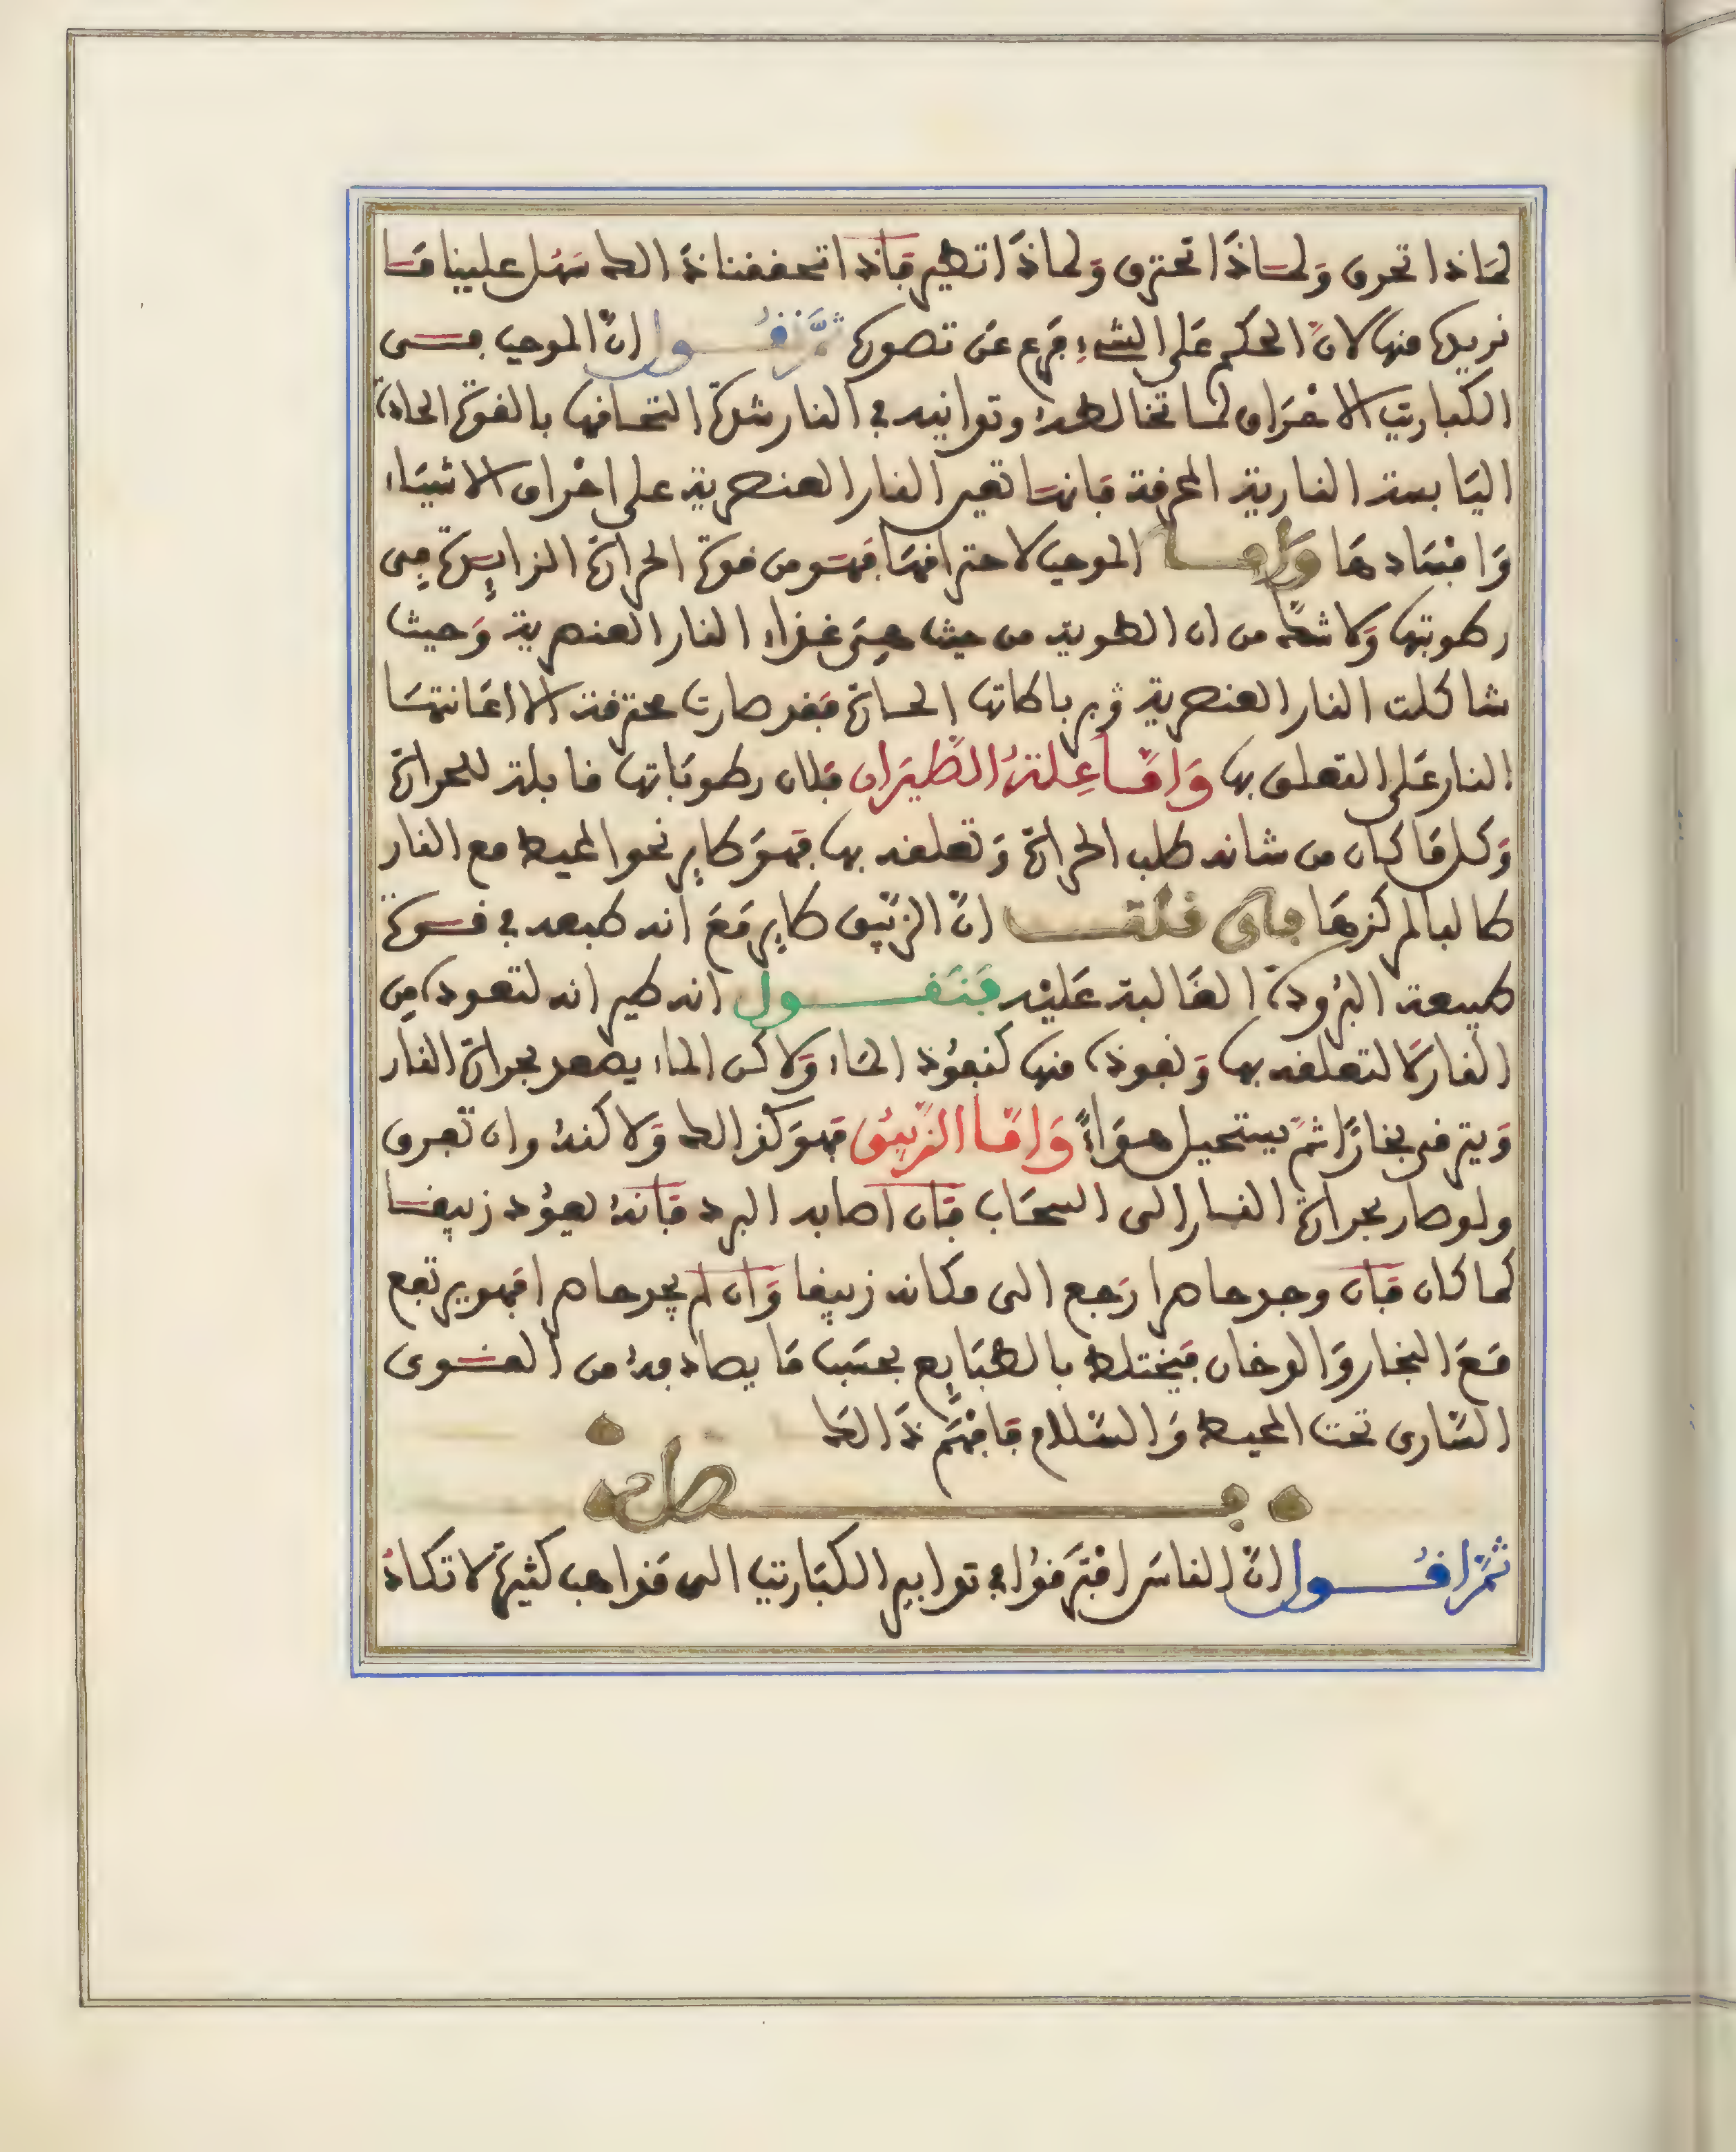 لماذا تحرق ولماذا تحترق ولماذا تطير فاذا تحققنا ذالك سهل علينا ما
نريده منها لان الحكم على الشيء فرع عن تصوره ثم نقول ان الموجب في
الكباريت الاحراق لما تخالطه وتدانيه في النار شدة التحافها بالقوة الحادة
اليابسة النارية المحرقة فانها تعين النار العنصرية على احراق الاشياء
وافسادها واما الموجب لاحتراقها فهو من قوة الحرارة الزايدة في
رطوبتها ولا شك من ان الرطوبة من حيث هي غذاء النار العنصرية وحيث
شاكلت النار العنصرية الحارة فقد صارت محترقة لاعانتها
النار على التعلق بها واما علة الطيران فلان رطوباتها قابلة للحرارة
وكل ما كان من شانه طلب الحرارة وتعلقه بها فهو طاير نحو المحيط مع النار
طالبا لمركزها فان قلت ان الزيبق طاير مع انه طبعه في قوة
طبيعة البرودة الغالبة عليه فنقول انه طير انه لنفوذه من
النار لا لتعلقه بها ونفوذه منها كنفوذ الماء ولاكن الماء يصعد بحرارة النار
ويترقى بخارا ثم يستحيل هواء واما الزيبق فهو كذالك ولاكنه وان تفرق
ولو صار بحرارة النار الى السحاب فان اصابه البرد فانه يعود زيبقا
كما كان فان وجد حاصرا رجع الى مكانه زيبقا وان لم يجد حاصرا فهو يرتفع
مع البخار والدخان فيختلط بالطبايع بحسب ما يصادفه من القوى
السارى تحت المحيط والسلام فافهم ذالك
فصل
ثم اقول ان الناس افترقوا في تدابير الكباريت الى مذاهب كثيرة لا تكاد